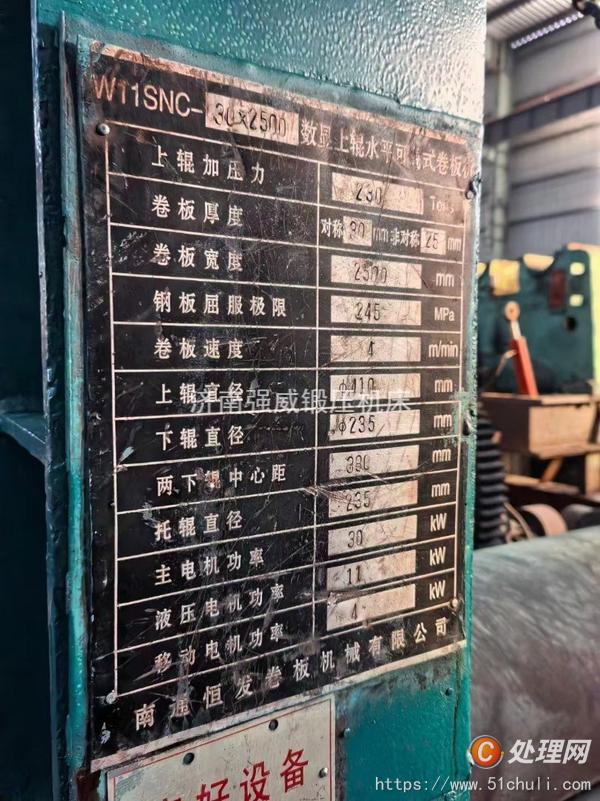 W11SNC-30×2500 数显上辊水平可调式卷板机
上辊加压力 230 Tons
卷板厚度 对称30mm非对称25mm
卷板宽度 2500 mm
钢板屈服极限 245 MPa
卷板速度 4 m/min
上辊直径 φ410 mm
下辊直径 φ235 mm
两下辊中心距 mm
托辊直径 235 mm
主电机功率 30 kW
液压电机功率 11 kW
移动电机功率 4 kW
南通恒发卷板机械有限公司
济南强威锻压机床
好设备
C 处理网
https://www.51chuli.com/